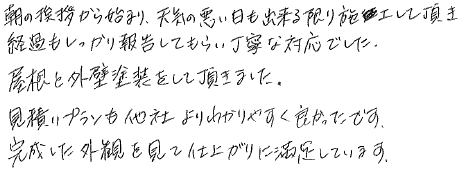 朝の挨拶から始まり、天気の悪い日も出来る限り施工して頂き
経過もしっかり報告してもらい丁寧な対応でした。
屋根と外壁塗装をして頂きました。
見積りプランも他社よりわかりやすく良かったです。
完成した外観を見て仕上がりに満足しています。